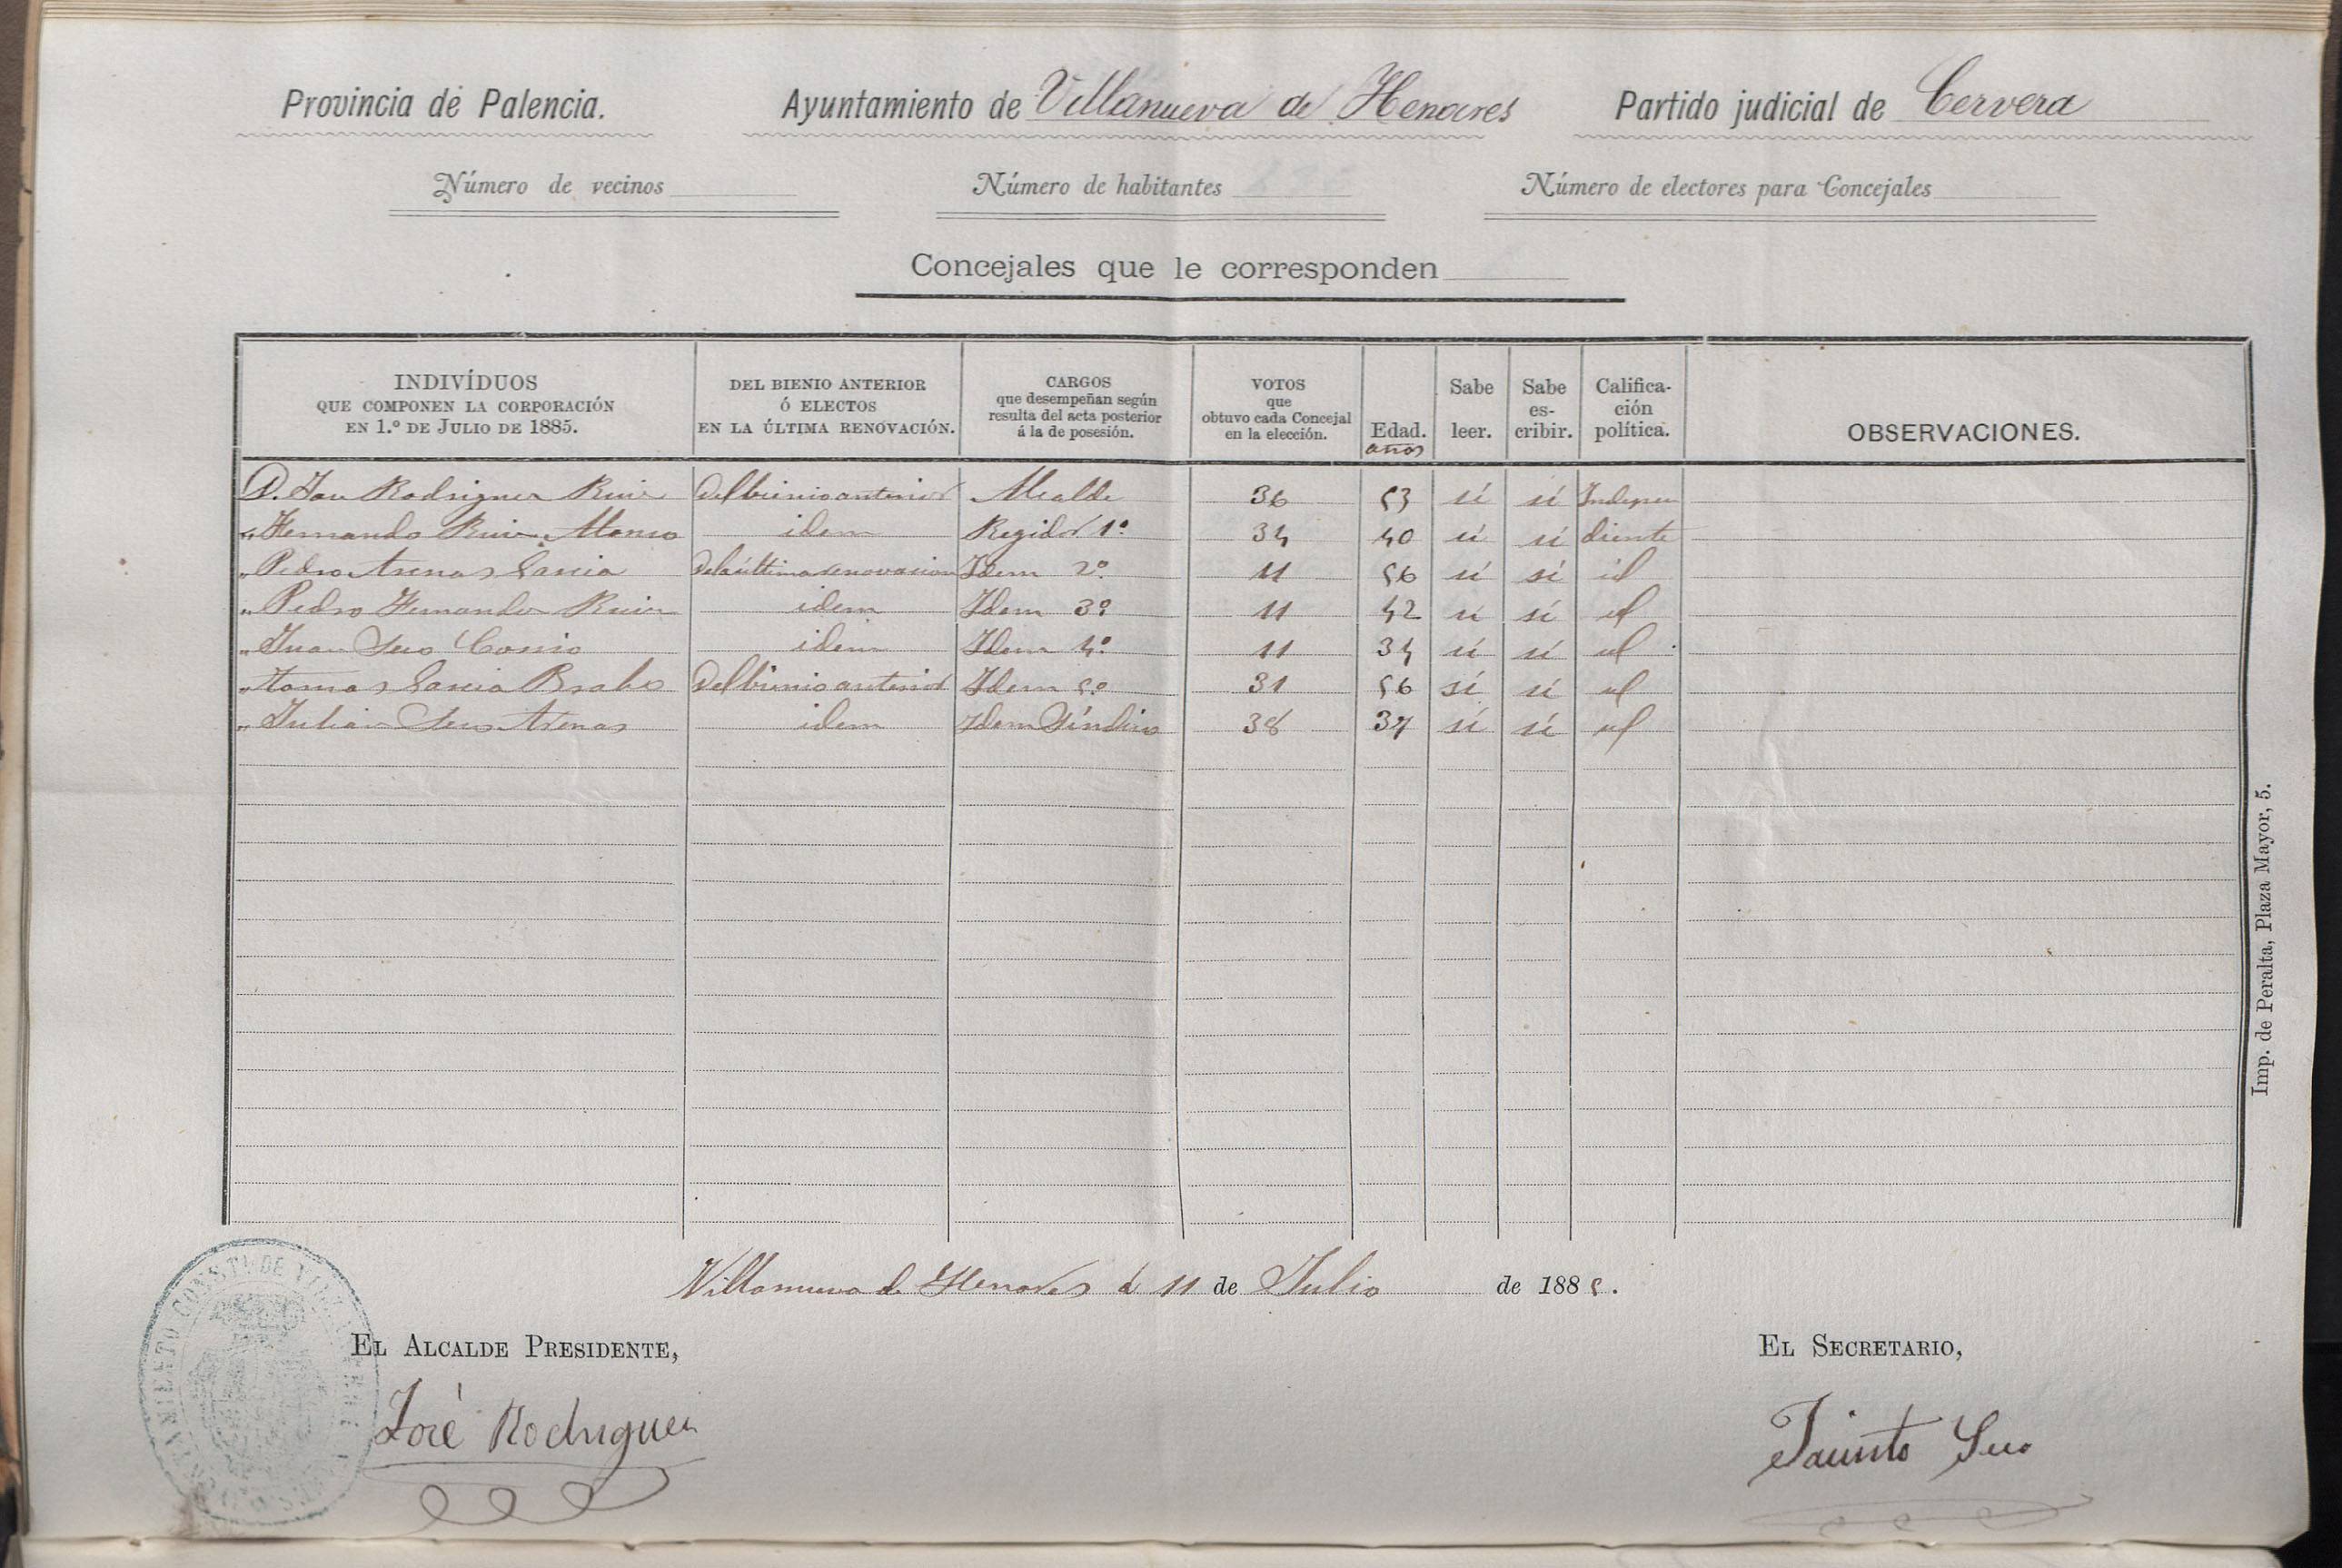 Provincia de Palencia. Ayuntamiento de Villanueva de Henares Partido judicial de Cervera
Número de vecinos Número de habitantes Número de electores para Concejales
Concejales que le corresponden
INDIVÍDUOS
QUE COMPONEN LA CORPORACIÓN
EN 1.º DE JULIO DE 1885.
DEL BIENIO ANTERIOR
Ó ELECTOS
EN LA ÚLTIMA RENOVACIÓN.
CARGOS
que desempeñan según
resulta del acta posterior
á la de posesión.
VOTOS
que
obtuvo cada Concejal
en la elección.
Edad.
años
Sabe
leer.
Sabe
es-
cribir.
Califica-
ción
política.
OBSERVACIONES.
D. José Rodriguez Ruiz Del bienio anterior Alcalde 36 53 sí sí Indepen
" Fernando Ruiz Alonso idem Regidor 1º 34 40 sí sí diente
" Pedro Arenas Garcia De la última renovacion Idem 2º 11 56 sí sí id
" Pedro Fernandez Ruiz idem Idem 3º 11 42 sí sí id
" Juan Seco Cossio idem Idem 4º 11 34 sí sí id
" Tomas Garcia Brabo Del bienio anterior Idem 5º 31 56 sí sí id
" Julian Seco Arenas idem Idem Síndico 38 37 sí sí id
Villanueva de Henares á 11 de Julio de 1885.
EL ALCALDE PRESIDENTE, EL SECRETARIO,
José Rodriguez Jacinto Seco
Imp. de Peralta, Plaza Mayor, 5.